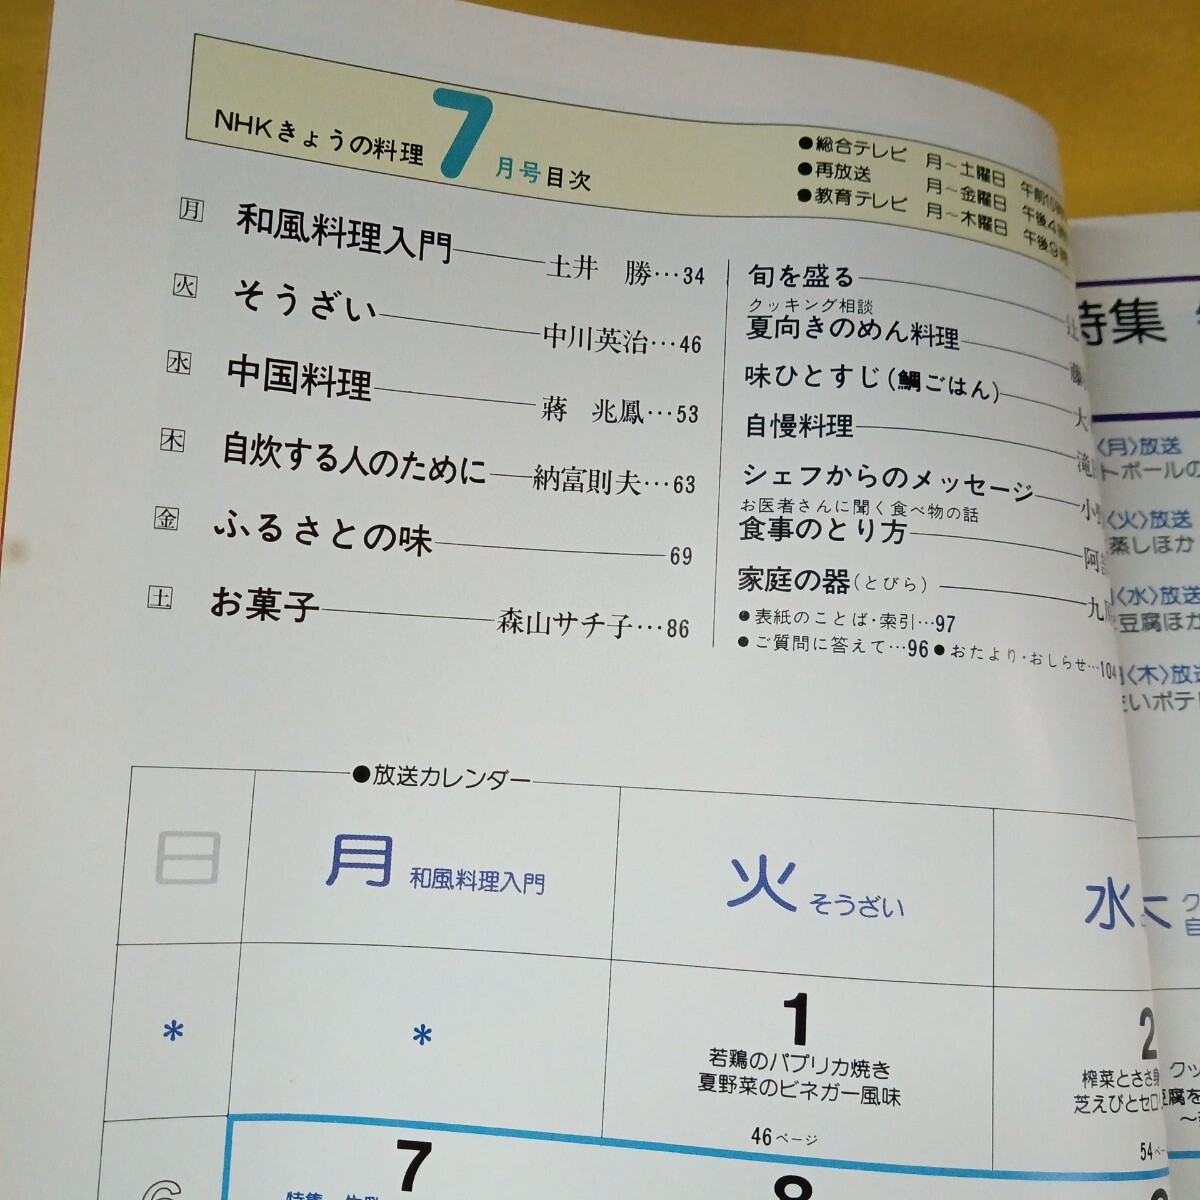 NHKきょうの料理 7月号目次
●総合テレビ 月～土曜日 午前10
●再放送 月～金曜日 午後4
●教育テレビ 月～木曜日 午後9
月 和風料理入門 土井 勝…34
火 そうざい 中川英治…46
水 中国料理 蔣 兆鳳…53
木 自炊する人のために 納富則夫…63
金 ふるさとの味 69
土 お菓子 森山サチ子…86
旬を盛る
クッキング相談
夏向きのめん料理
味ひとすじ(鯛ごはん) 大
自慢料理 滝
シェフからのメッセージ 小
お医者さんに聞く食べ物の話
食事のとり方 阿
家庭の器(とびら) 九
●表紙のことば・索引…97
●ご質問に答えて…96 ●おたより・おしらせ…104
●放送カレンダー
日
月 和風料理入門
火 そうざい
水
*
*
1
若鶏のパプリカ焼き
夏野菜のビネガー風味
46ページ
2
榨菜とささ身
芝えびとセロ
54ペー
6
7
8
特集
特集
〈月〉放送
トボールの
〈火〉放送
蒸しほか
〈水〉放送
豆腐ほか
〈木〉放送
いポテ
木 ク
自
クッ
腐を